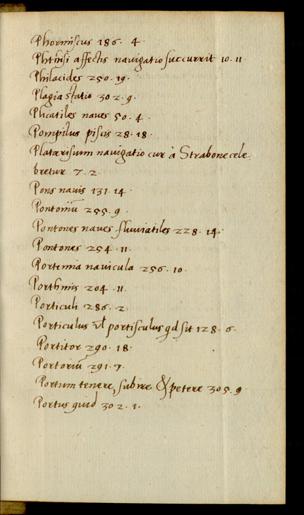 Phormiscus 186. 4.
Phthisi affectis navigatio succurrit 10. 11
Philacides 250. 19.
Plagia statio 302. 9.
Plicatiles naves 50. 4.
Pompilus piscis 28. 18.
navigatio cur à Strabone cele
bretur 7. 2
Pons navis 131. 14
Pontoniū 255. 9.
Pontones naves fluviatiles 228. 14.
Pontones 254. 11.
Portemia navicula 256. 10.
Porthmis 204. 11.
Porticuli 286. 2.
Porticulus vł portisculus qd sit 128. 6.
Portitor 290. 18.
Portoriū 291. 7.
Portum tenere, subire & petere 305. 9
Portus quid 302. 1.